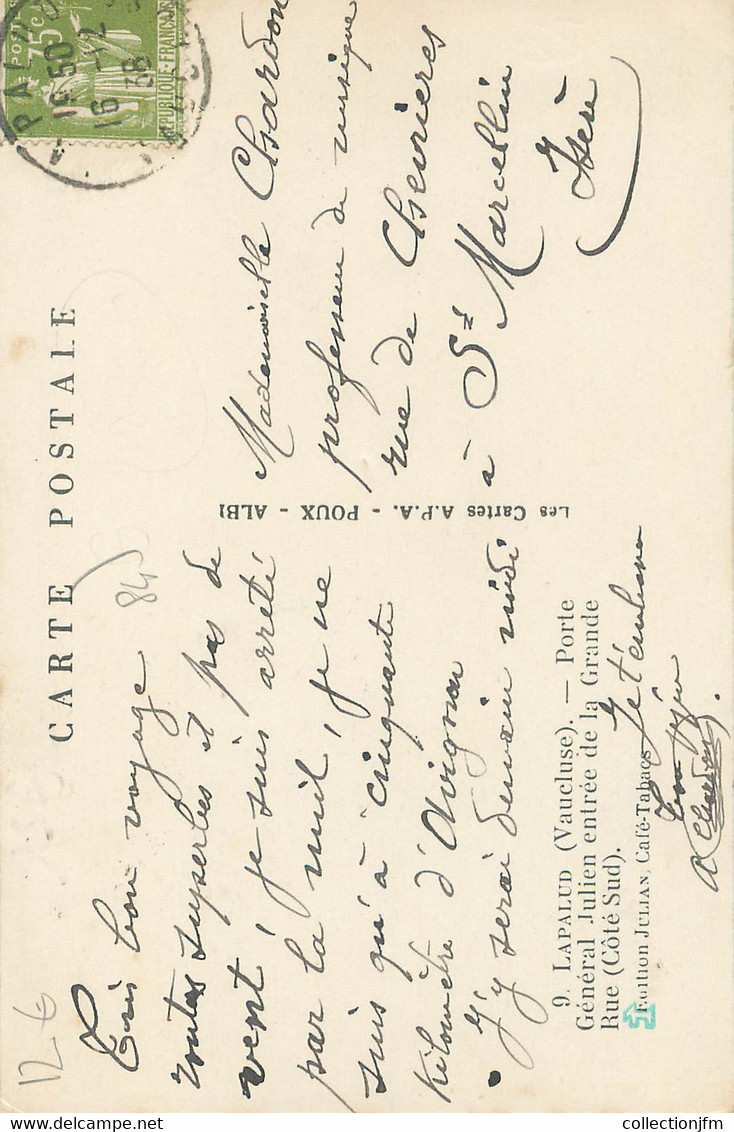 CARTE POSTALE
POSTES
75c
RÉPUBLIQUE-FRANÇAISE
16 50
16 -2
38
12 €
84
Très bon voyage
routes superbes et pas de
vent, je suis arrêté
par la nuit, je ne
suis qu'à cinquante
kilomètre d'Avignon
J'y serai demain midi
Je t'embrasse
Ton
A Chardon.
Mademoiselle Chardon
professeur de musique
rue de Chevrières
à St Marcellin
Isère
Les Cartes A.P.A. - POUX - ALBI
9. LAPALUD (Vaucluse). — Porte
Général Julien entrée de la Grande
Rue (Côté Sud).
Edition JULIAN, Café-Tabacs
collectionjfm